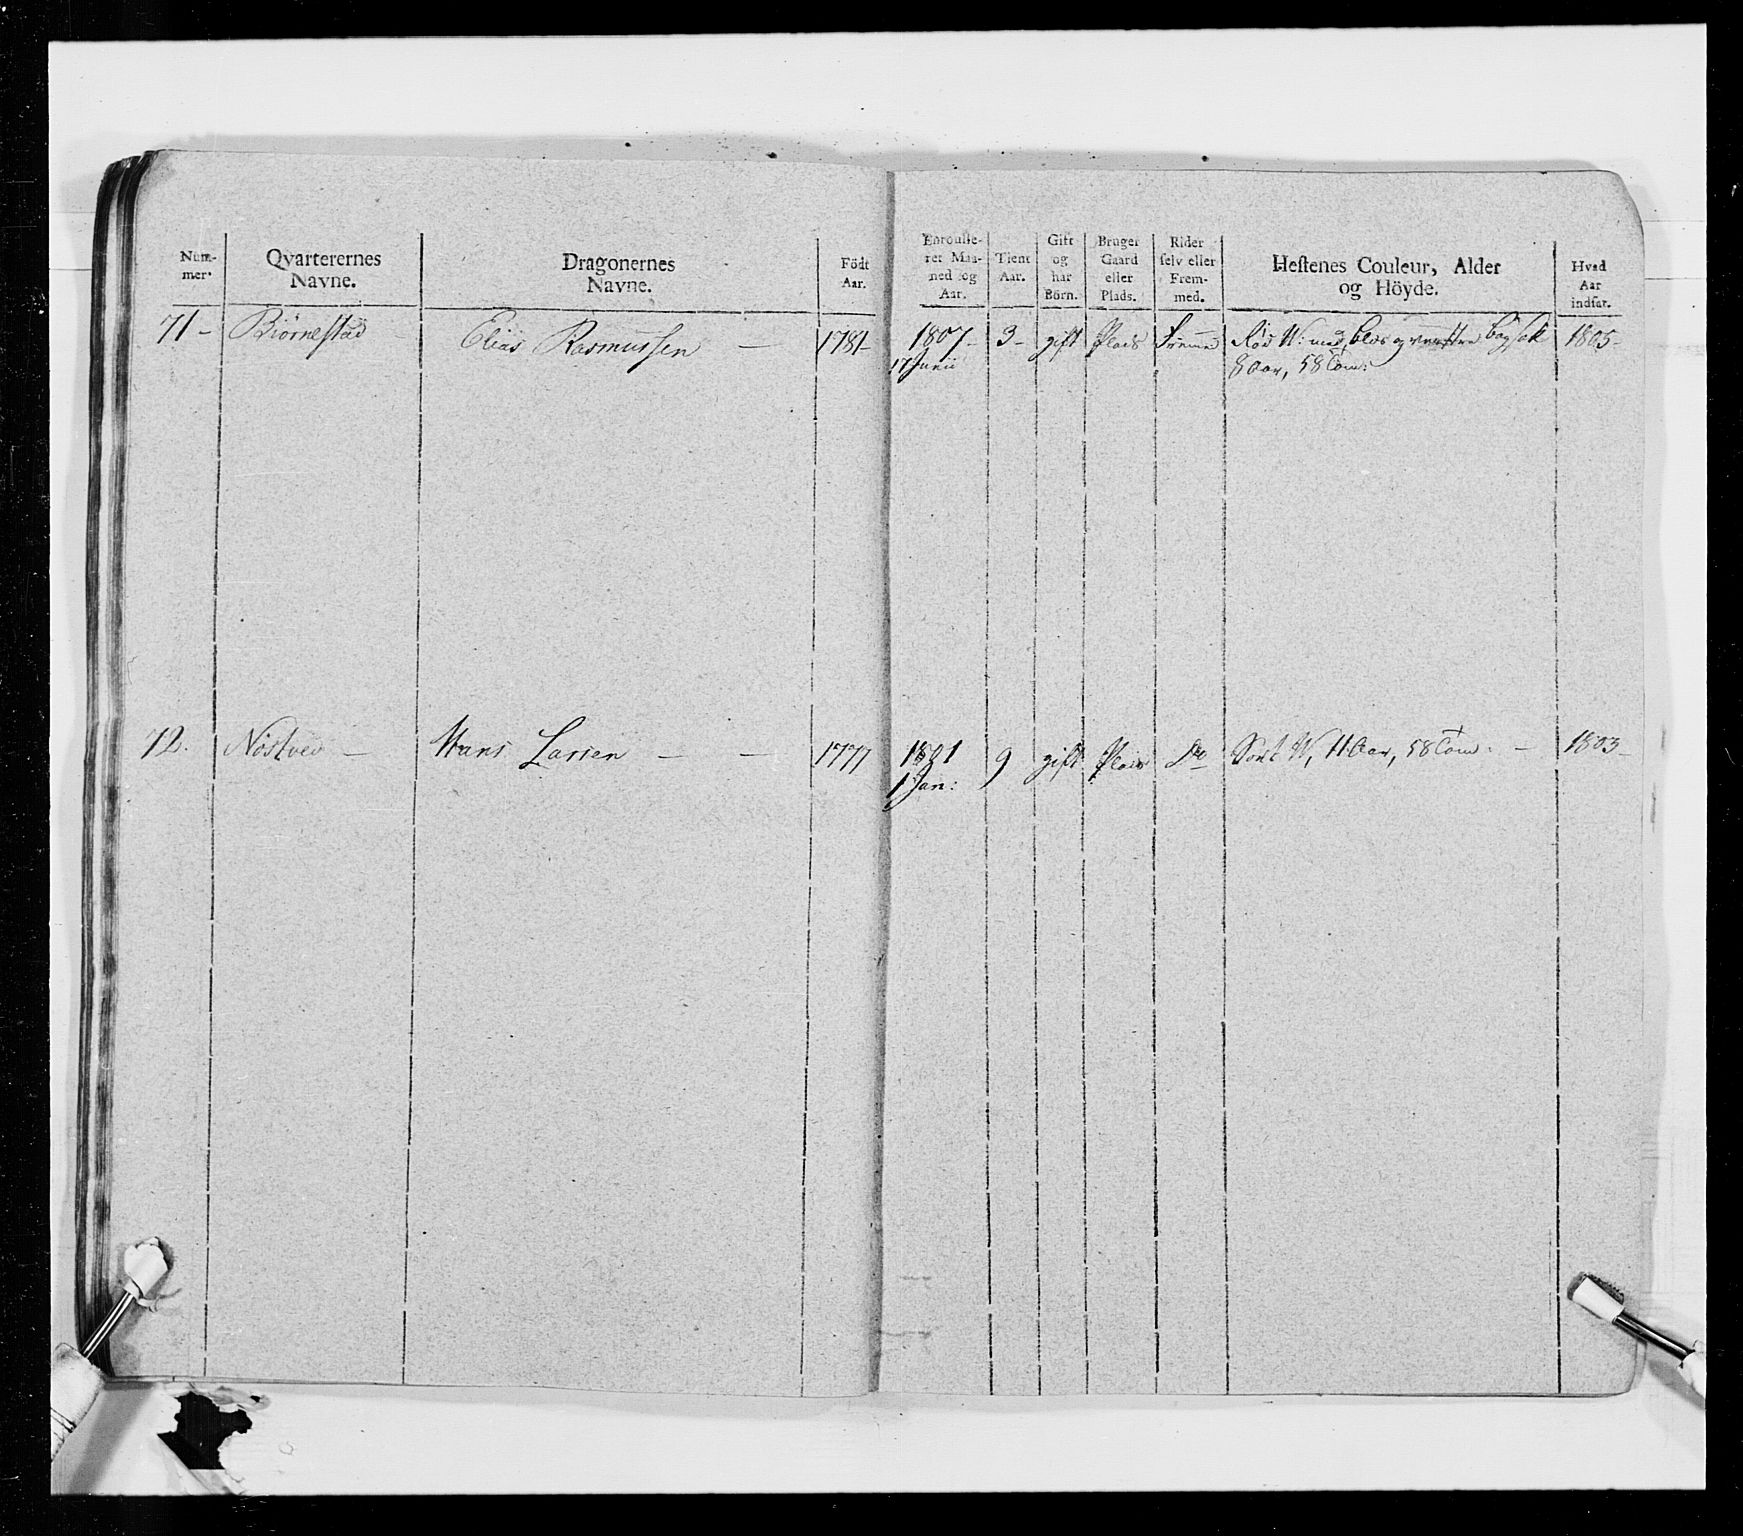 Num-
mer.
Qvarterernes
Navne.
Dragonernes
Navne.
Födt
Aar.
Enroulle-
ret Maa-
ned og
Aar.
Tient
Aar.
Gift
og
har
Börn.
Bruger
Gaard
eller
Plads.
Rider
selv eller
Frem-
med.
Hestenes Couleur, Alder
og Höyde.
Hvad
Aar
indsat.
71 - Biørnestad - Elias Rasmussen - 1781 - 1807 - 3 - gift Plads Fremed Rød W: med blis og venstre bagsok 1805 -
17 Junii 8 Aar, 58 Tom:
72. Nøstved - Hans Larsen - - 1777 1801 9 gift Plads do Sort W, 11 Aar, 58 Tom: - 1803
1 Jan: